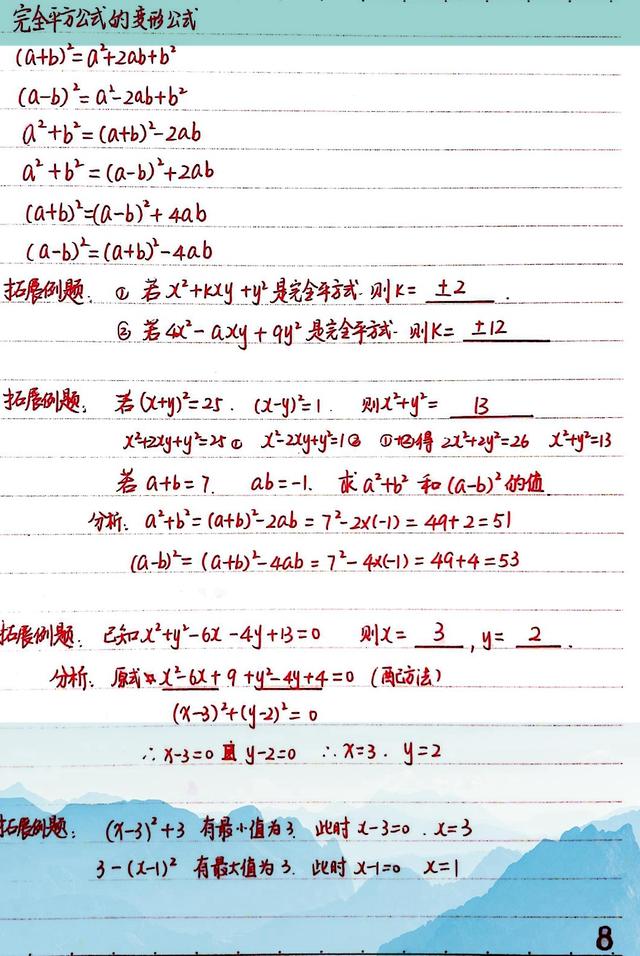 完全平方公式的变形公式
(a+b)²=a²+2ab+b²
(a-b)²=a²-2ab+b²
a²+b²=(a+b)²-2ab
a²+b²=(a-b)²+2ab
(a+b)²=(a-b)²+4ab
(a-b)²=(a+b)²-4ab
拓展例题. ① 若x²+kxy+y²是完全平方式. 则k= ±2 .
② 若4x²-axy+9y²是完全平方式. 则k= ±12
拓展例题. 若(x+y)²=25. (x-y)²=1. 则x²+y²= 13
x²+2xy+y²=25① x²-2xy+y²=1② ①+②得 2x²+2y²=26 x²+y²=13
若a+b=7. ab=-1. 求a²+b²和(a-b)²的值
分析. a²+b²=(a+b)²-2ab=7²-2×(-1)=49+2=51
(a-b)²=(a+b)²-4ab=7²-4×(-1)=49+4=53
拓展例题. 已知x²+y²-6x-4y+13=0 则x= 3 , y= 2 .
分析. 原式 x²-6x+9+y²-4y+4=0 (配方法)
(x-3)²+(y-2)²=0
∴x-3=0 且 y-2=0 ∴x=3. y=2
拓展例题: (x-3)²+3 有最小值为3. 此时 x-3=0. x=3
3-(x-1)² 有最大值为3. 此时 x-1=0 x=1
8